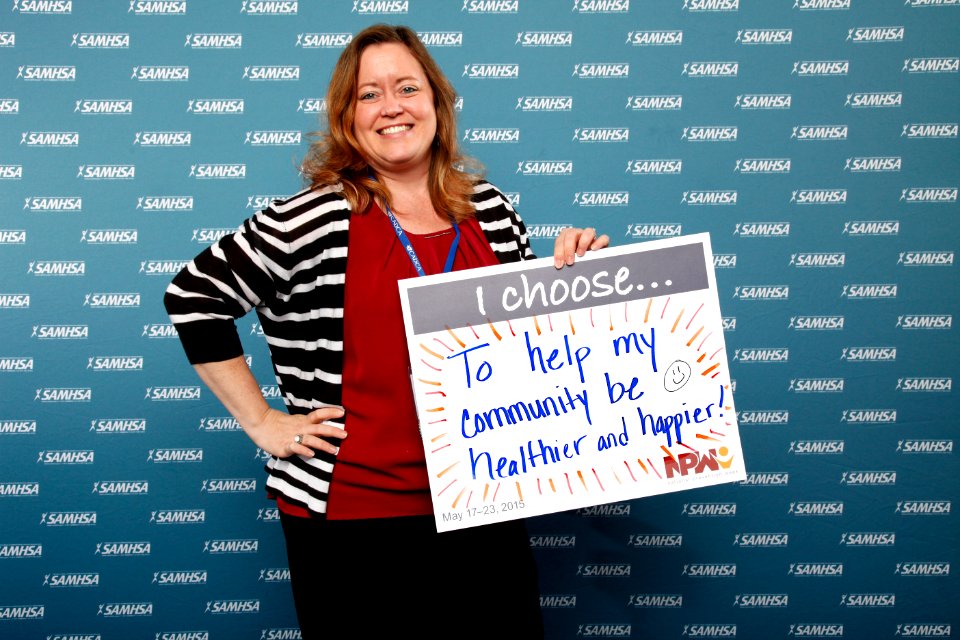 SAMHSA
CADCA
I choose...
To help my
community be
healthier and happier!
NPW
May 17–23, 2015